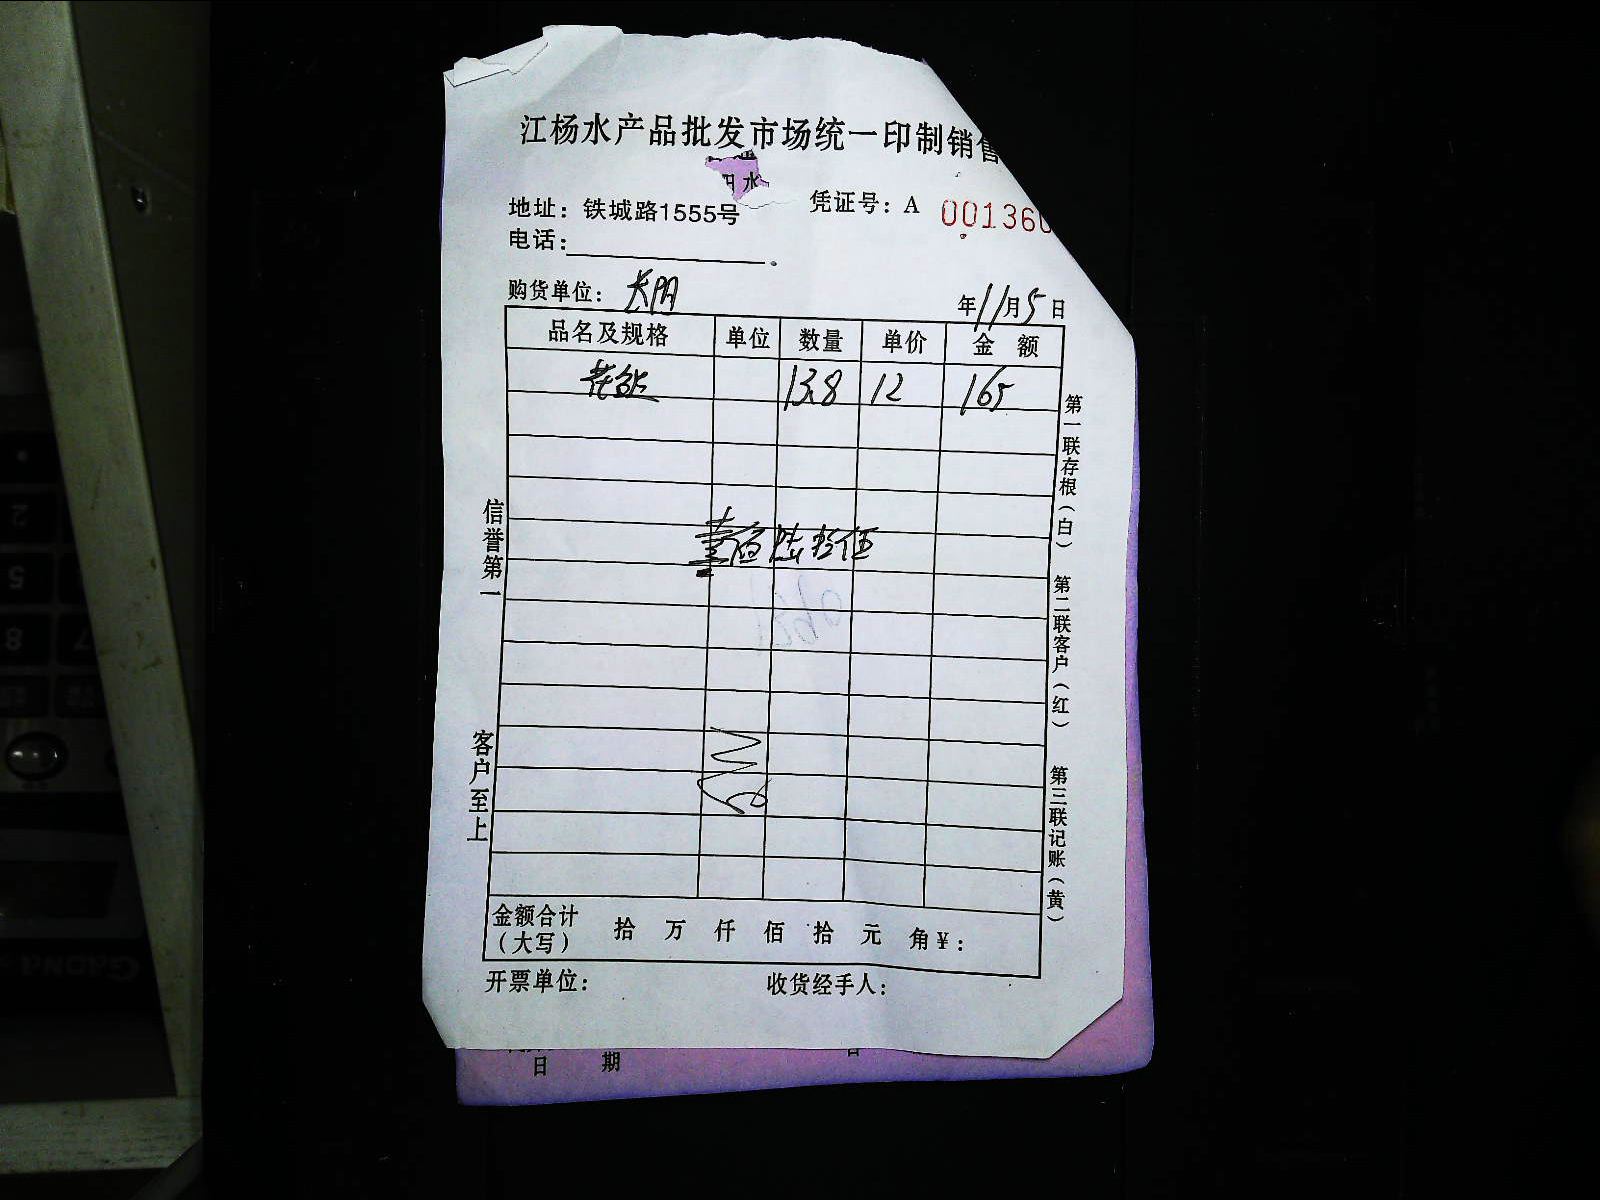 江杨水产品批发市场统一印制销售
水
地址：铁城路1555号
凭证号：A 001360
电话：
购货单位：长阳
年11月5日
品名及规格 单位 数量 单价 金额
13.8 12 165
壹佰陆拾伍
信誉第一
客户至上
第一联存根（白）
第二联客户（红）
第三联记账（黄）
金额合计（大写） 拾 万 仟 佰 拾 元 角¥：
开票单位：
收货经手人：
日 期
2
5
8
7